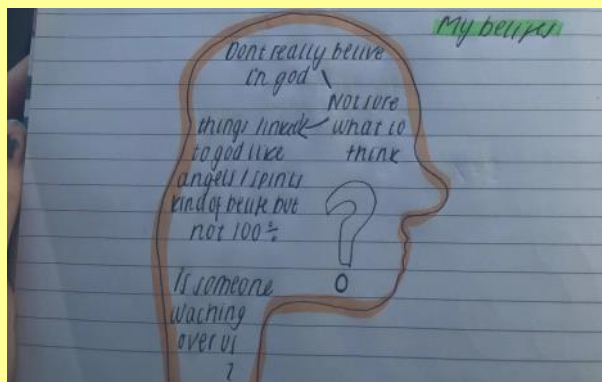 My belifes
Dont really belive
in god
Not sure
what to
think
things linked
to god like
angels/spirits
kind of belife but
not 100%
?
Is someone
waching
over us
?